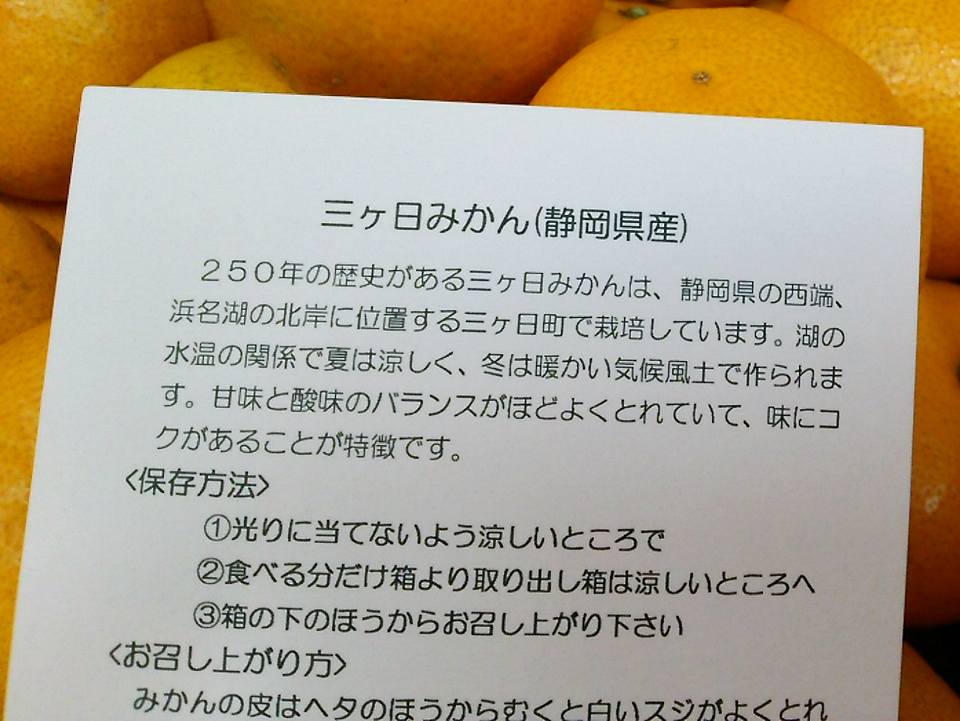 三ヶ日みかん(静岡県産)
２５０年の歴史がある三ヶ日みかんは、静岡県の西端、
浜名湖の北岸に位置する三ヶ日町で栽培しています。湖の
水温の関係で夏は涼しく、冬は暖かい気候風土で作られま
す。甘味と酸味のバランスがほどよくとれていて、味にコ
クがあることが特徴です。
<保存方法>
①光りに当てないよう涼しいところで
②食べる分だけ箱より取り出し箱は涼しいところへ
③箱の下のほうからお召し上がり下さい
<お召し上がり方>
みかんの皮はヘタのほうからむくと白いスジがよくとれ